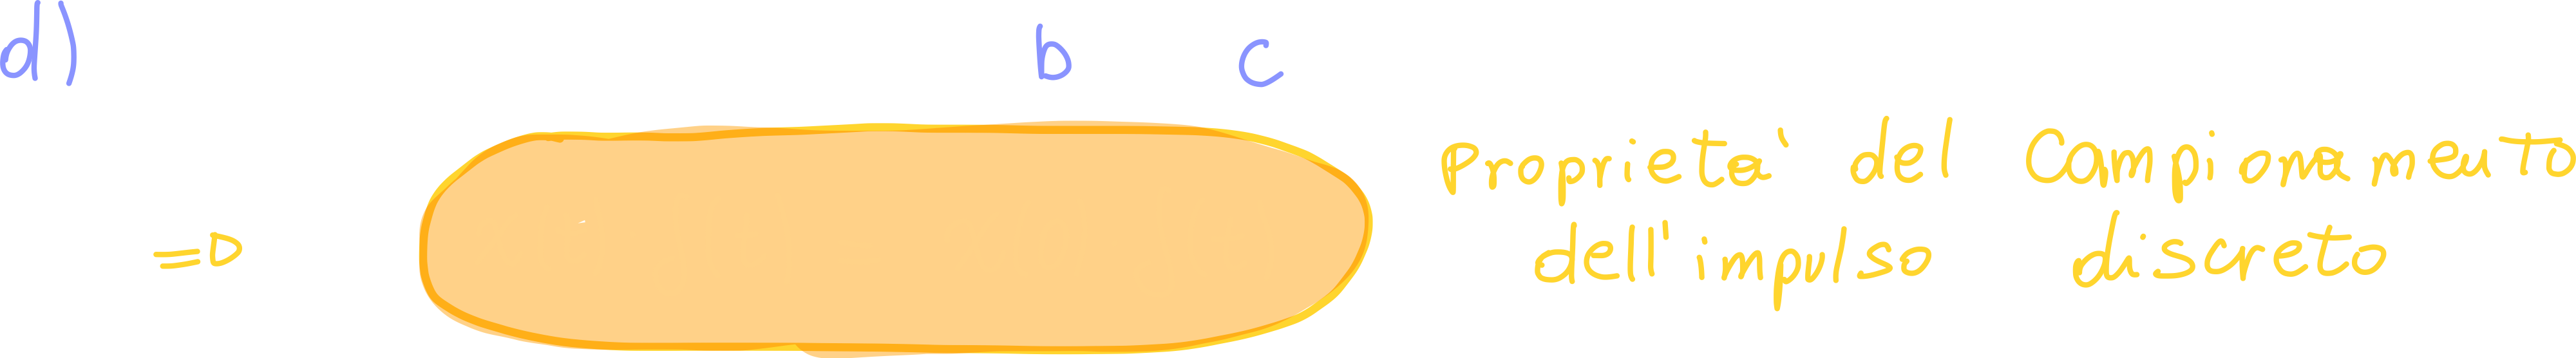 d) b c
Proprietà del Campionamento
=D dell'impulso discreto